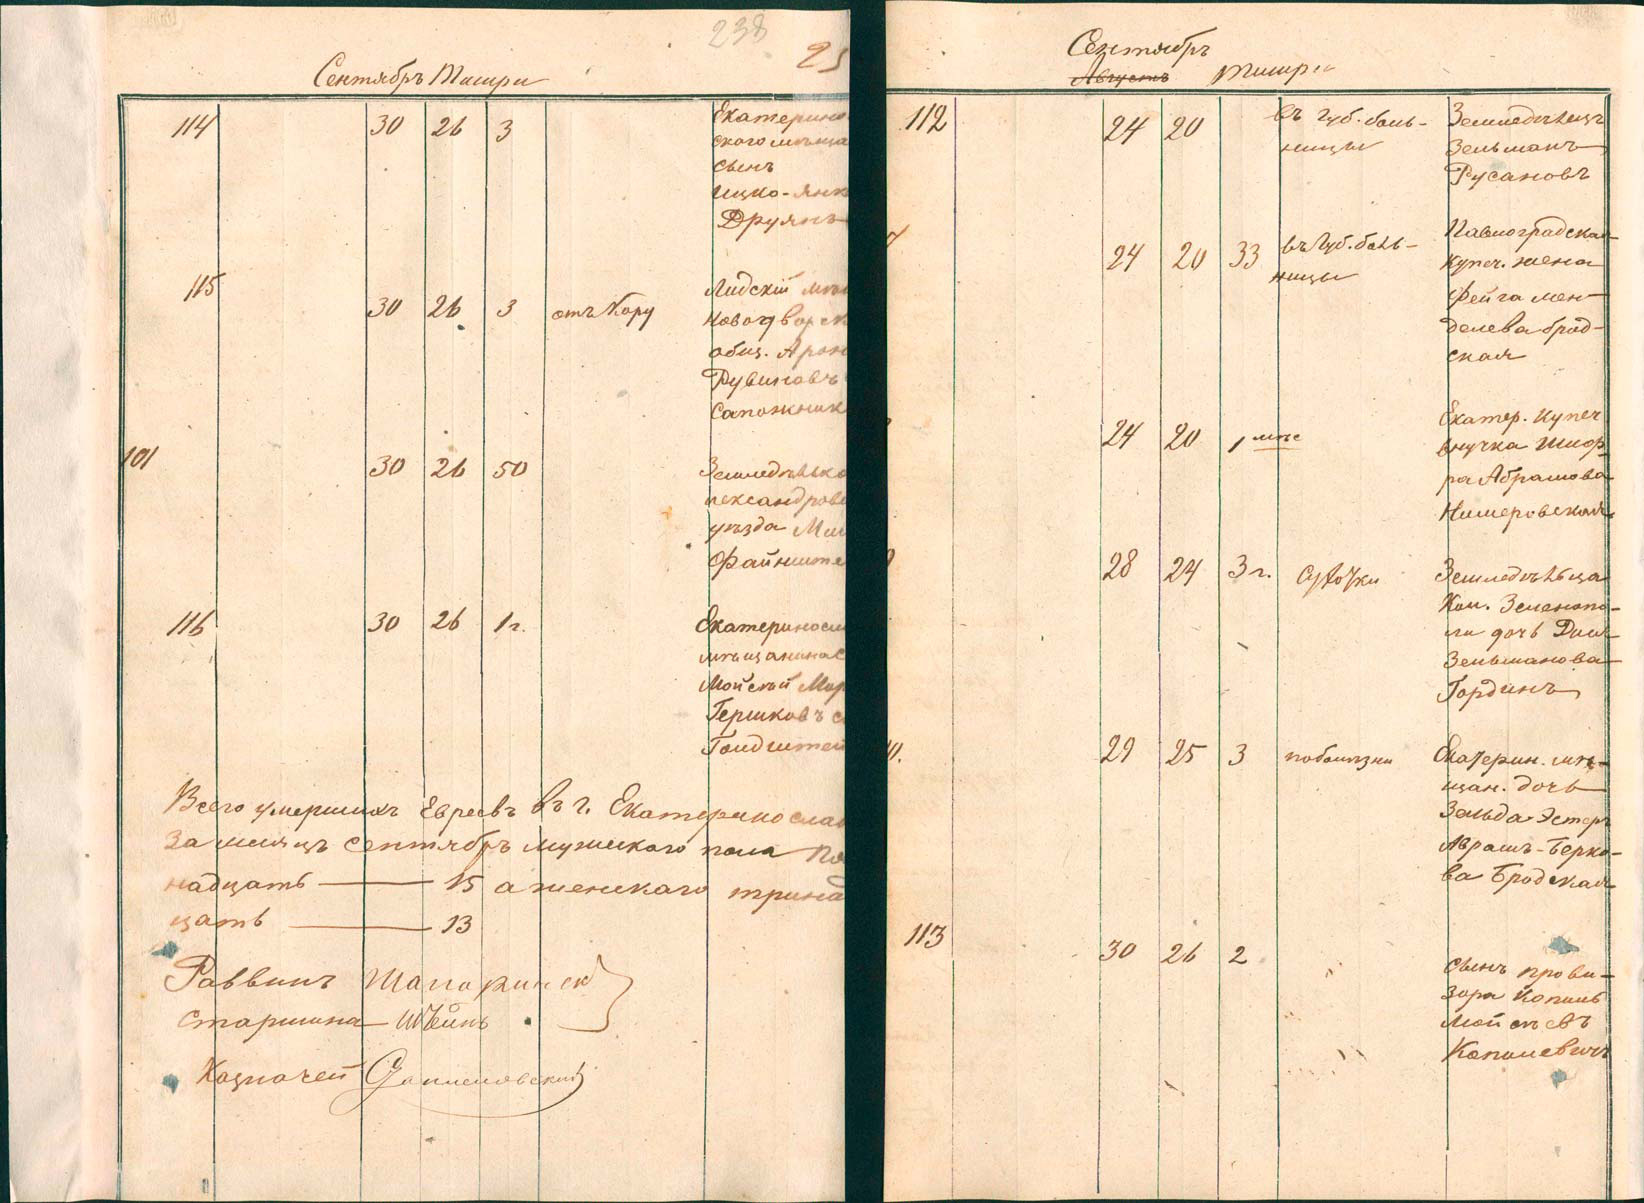 238
25
Сентябрь Тишри
114 30 26 3 Екатерино
ского мѣща
сынъ
Ицко-Янк
Друянъ
115 30 26 3 отъ Кору Лидскій мѣщ
Новодворск
общ. Арон
Рувиновъ
Сапожник
101 30 26 50 Земледѣльс
лександровс
уѣзда
Файнште
116 30 26 1 г. Екатеринос
мѣщанина с
Мойсѣй Мор
Гершковъ с
Гольдштей
Всего умершихъ Евреевъ въ г. Екатеринослав
за мѣсяцъ Сентябрь мужескаго пола Пят
надцать 15 а женскаго тринад
цать 13
Раввинъ Шапиринск
Старшина Штейнъ
Казначей
Сентябрь
Августъ Тишри
112 24 20 въ губ. боль-
ницы
Земледѣлецъ
Зельманъ
Русановъ
7 24 20 33 въ губ. боль-
ницы
Павлоградская
купеч. жена
Фейга Мен-
делева Брод-
ская
24 20 1 мѣс Екатер. купеч
внучка Шиф-
ра Абрамова
Нимеровская
28 24 3 г. Земледѣльца
Кол. Зеленопо-
ля дочь
Зельманова
Гординъ
29 25 3 поболѣзни Екатерин. мѣ-
щан. дочь
Зельда-Эстеръ
Абрамъ-Берко-
ва Бродская
113 30 26 2 сынъ прови-
зора Копель
Мойсѣевъ
Копилевичъ